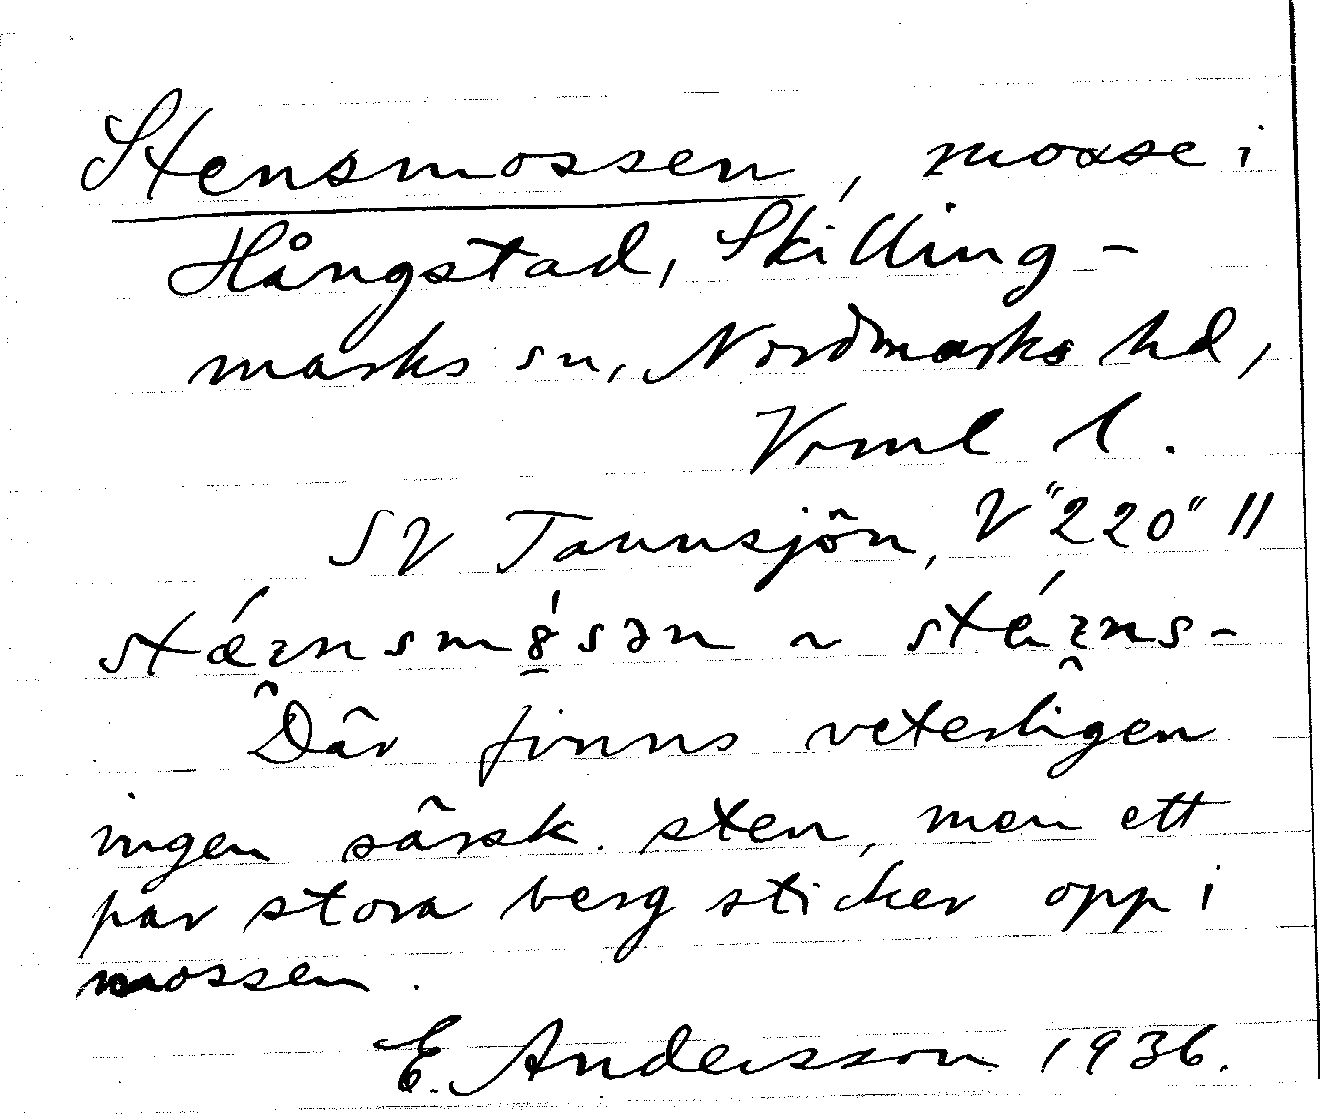 Stensmossen, mosse i
Hångstad, Skilling-
marks sn, Nordmarks hd,
Vrml l.
SV Tannsjön, V "220" //
stǽɪnsmə̀sən ~ stéɪns-
Där finns veterligen
ingen särsk. sten, men ett
par stora berg sticker opp i
mossen.
E. Andersson 1936.